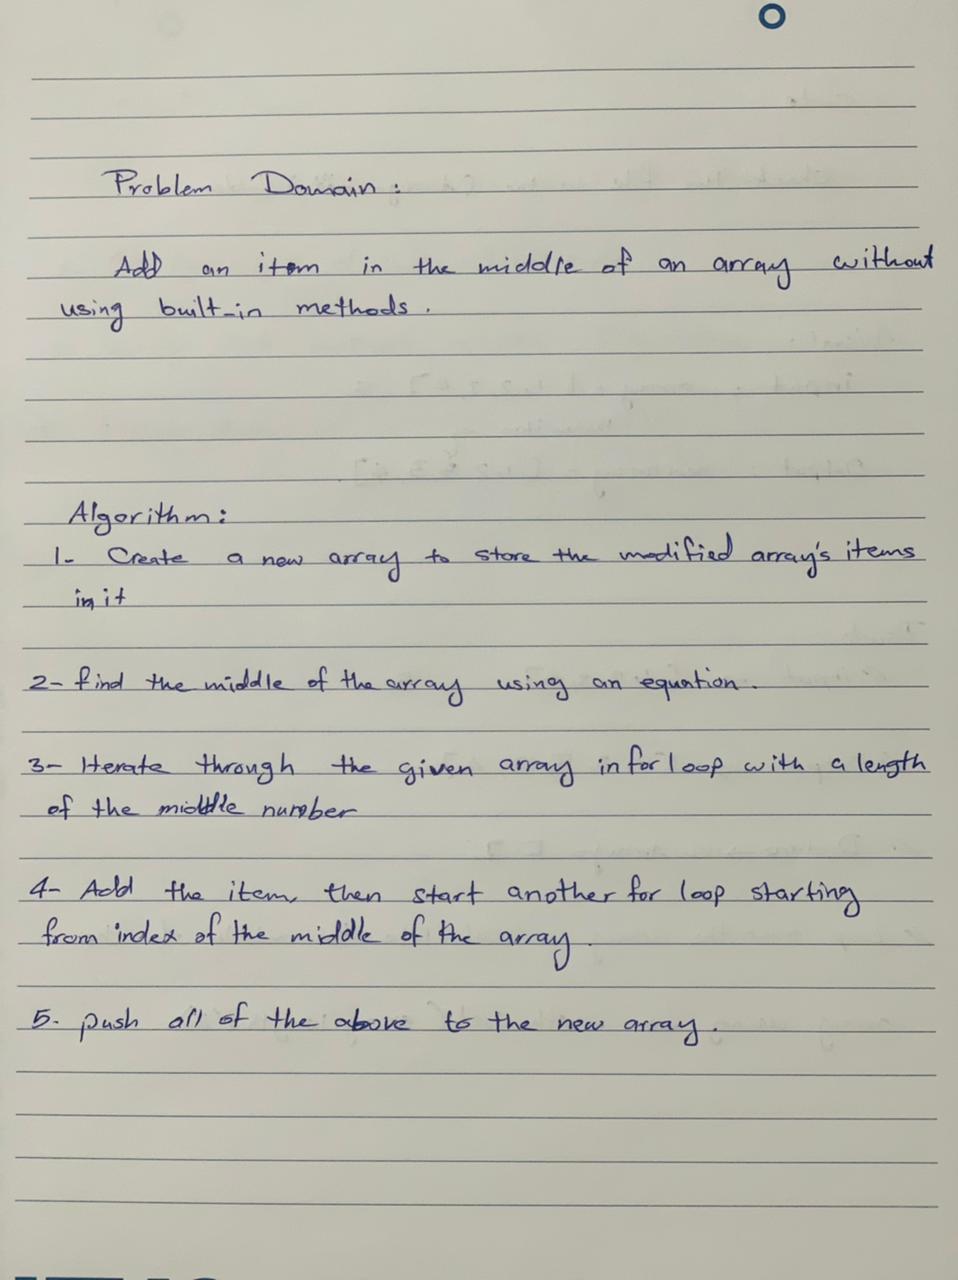 Problem Domain :
Add an item in the middle of an array without
using built-in methods .
Algorithm :
1- Create a new array to store the modified array's items
in it
2- find the middle of the array using an equation .
3- Iterate through the given array in for loop with a length
of the middle number
4- Add the item, then start another for loop starting
from index of the middle of the array .
5- push all of the above to the new array .